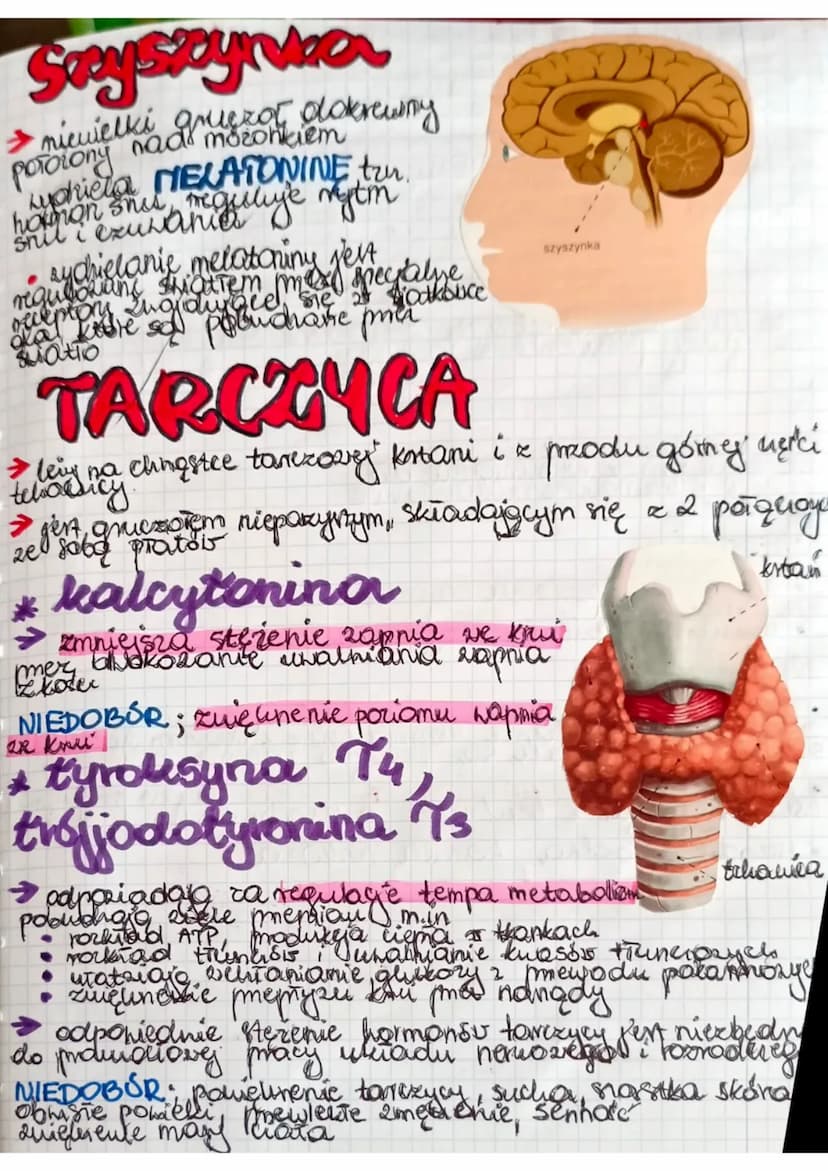 Szyszynka
→ niewielki gruczoł dokrewny
położony nad móżdżkiem
wydziela MELATONINĘ tzw.
hormon snu, reguluje rytm
snu i czuwania
• wydzielanie melatoniny jest
regulowane światłem przez specjalne
receptory znajdujące się w siatkówce
oka, które są pobudzane przez
światło
szyszynka
TARCZYCA
→ leży na chrząstce tarczowej krtani i z przodu górnej części
tchawicy
→ jest gruczołem nieparzystym, składającym się z 2 połączony
ze sobą płatów
krtań
* kalcytonina
→ zmniejsza stężenie wapnia we krwi
przez blokowanie uwalniania wapnia
z kości
NIEDOBÓR; zwiększenie poziomu wapnia
we krwi
* tyroksyna T4,
trójjodotyronina T3
tchawica
→ odpowiadają za regulację tempa metabolizm
pobudzają wiele przemian m.in
• rozkład ATP, produkcja ciepła w tkankach
• rozkład tłuszczów i uwalnianie kwasów tłuszczowych
• ułatwiają wchłanianie glukozy z przewodu pokarmowego
• zwiększenie przepływu krwi przez narządy
→ odpowiednie stężenie hormonów tarczycy jest niezbędn
do prawidłowej pracy układu nerwowego i rozrodczego
NIEDOBÓR: powiększenie tarczycy, sucha, szorstka skóra
obrzęk powieki, przewlekłe zmęczenie, senność
zwiększenie masy ciała